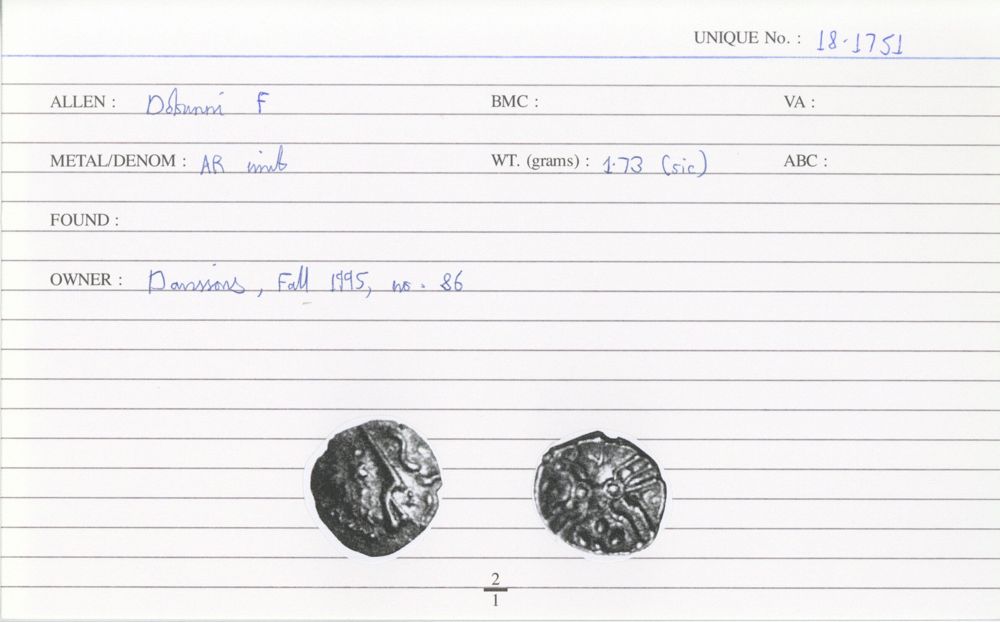 UNIQUE No. : 18·1751
ALLEN : Dobunni F BMC : VA :
METAL/DENOM : AR unit WT. (grams) : 1·73 (sic) ABC :
FOUND :
OWNER : Davissons, Fall 1995, no. 86
2
1